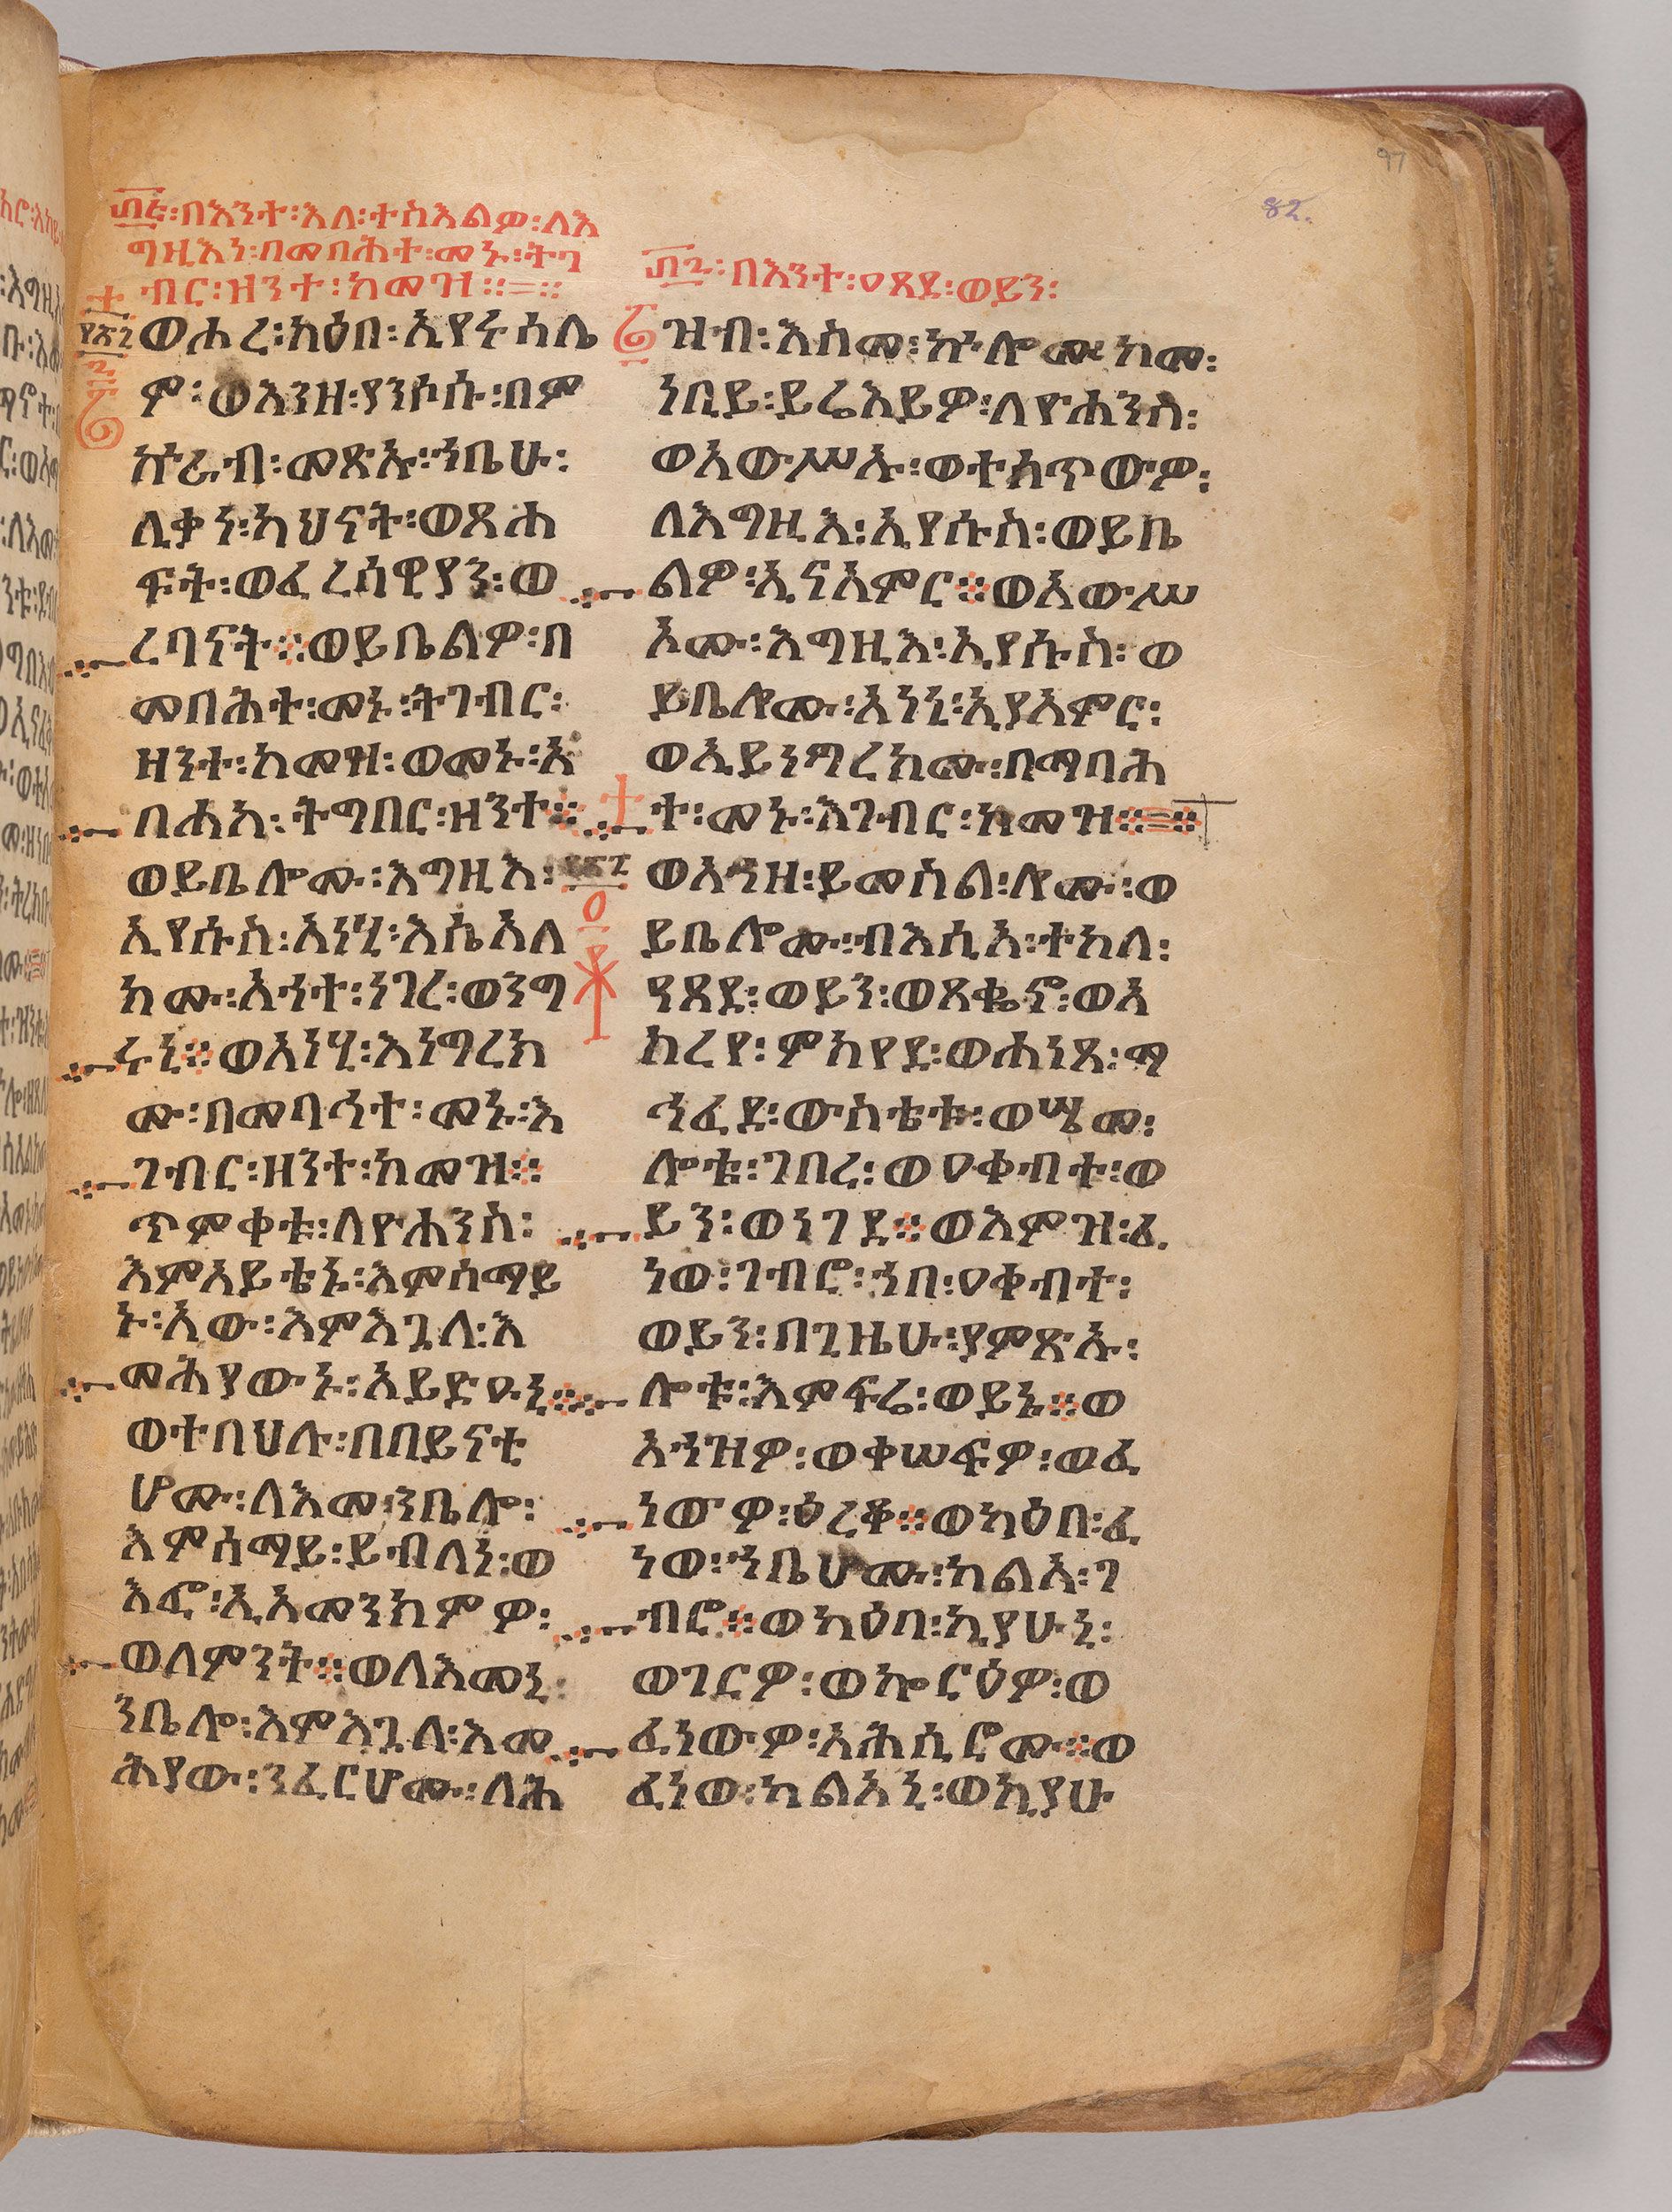 በእንተ፡እለ፡ተስእልዎ፡ለእ
ግዚእነ፡በመባሕተ፡መኑ፡ትገ
ብር፡ዝንተ፡ከመዝ።
ወሐረ፡ካዕበ፡ኢየሩሳሌ
ም፡ወእንዘ፡ያንሶሱ፡በም
ኵራብ፡መጽኡ፡ኀቤሁ፡
ሊቃነ፡ካህናት፡ወጸሐ
ፍት፡ወፈረሰዊያን፡ወ
ረባናት፨ወይቤልዎ፡በ
መበሕተ፡መኑ፡ትገብር፡
ዘንተ፡ከመዝ፡ወመኑ፡አ
በሐከ፡ትግበር፡ዘንተ፨
ወይቤሎሙ፡እግዚእ፡
ኢየሱስ፡አነሂ፡እሴአለ
ክሙ፡አሓተ፡ነገረ፡ወንግ
ሩኒ፨ወአነሂ፡እነግረክ
ሙ፡በመባኅተ፡መኑ፡እ
ገብር፡ዘንተ፡ከመዝ፨
ጥምቀቱ፡ለዮሐንስ፡
እምአይቴኑ፡እምሰማይ
ኑ፡አው፡እምእጓለ፡እ
መሕያውኑ፡አይድዑኒ፨
ወተበህሉ፡በበይናቲ
ሆሙ፡ለእመ፡ንቤሎ፡
እምሰማይ፡ይብለነ፡ወ
እፎ፡ኢአመንክምዎ፡
ወለምንት፨ወለእመኒ፡
ንቤሎ፡እምእጓለ፡እመ
ሕያው፡ንፈርሆሙ፡ለሕ
በእንተ፡ዐጸደ፡ወይን፡
ዝብ፡እስመ፡ኵሎሙ፡ከመ፡
ነቢይ፡ይሬእይዎ፡ለዮሐንስ፡
ወአውሥኡ፡ወተስጥውዎ፡
ለእግዚእ፡ኢየሱስ፡ወይቤ
ልዎ፡ኢናአምር፨ወአውሥ
ኦሙ፡እግዚእ፡ኢየሱስ፡ወ
ይቤሎሙ፡አነኒ፡ኢያአምር፡
ወኢይነግረክሙ፡በማባሕ
ተ፡መኑ፡እገብር፡ከመዝ፨
ወእንዘ፡ይመስል፡ሎሙ፡ወ
ይቤሎሙ፡ብእሲአ፡ተከለ፡
ዓጸደ፡ወይን፡ወጸቈኖ፡ወአ
ከረየ፡ምክየደ፡ወሐነጸ፡ማ
ኅፈደ፡ውስቴቱ፡ወሤመ፡
ሎቱ፡ገበረ፡ወዐቀብተ፡ወ
ይን፡ወነገደ፨ወእምዝ፡ፈ
ነወ፡ገብሮ፡ኀበ፡ዐቀብተ፡
ወይን፡በጊዜሁ፡ያምጽኡ፡
ሎቱ፡እምፍሬ፡ወይኑ፨ወ
አኀዝዎ፡ወቀሠፍዎ፡ወፈ
ነውዎ፡ዕረቆ፨ወካዕበ፡ፈ
ነወ፡ኀቤሆሙ፡ካልአ፡ገ
ብሮ፨ወካዕበ፡ኪያሁኒ፡
ወገርዎ፡ወኰርዕዎ፡ወ
ፈነውዎ፡አሕሲሮሙ፨ወ
ፈነወ፡ካልአኒ፡ወኪያሁ
97
82.